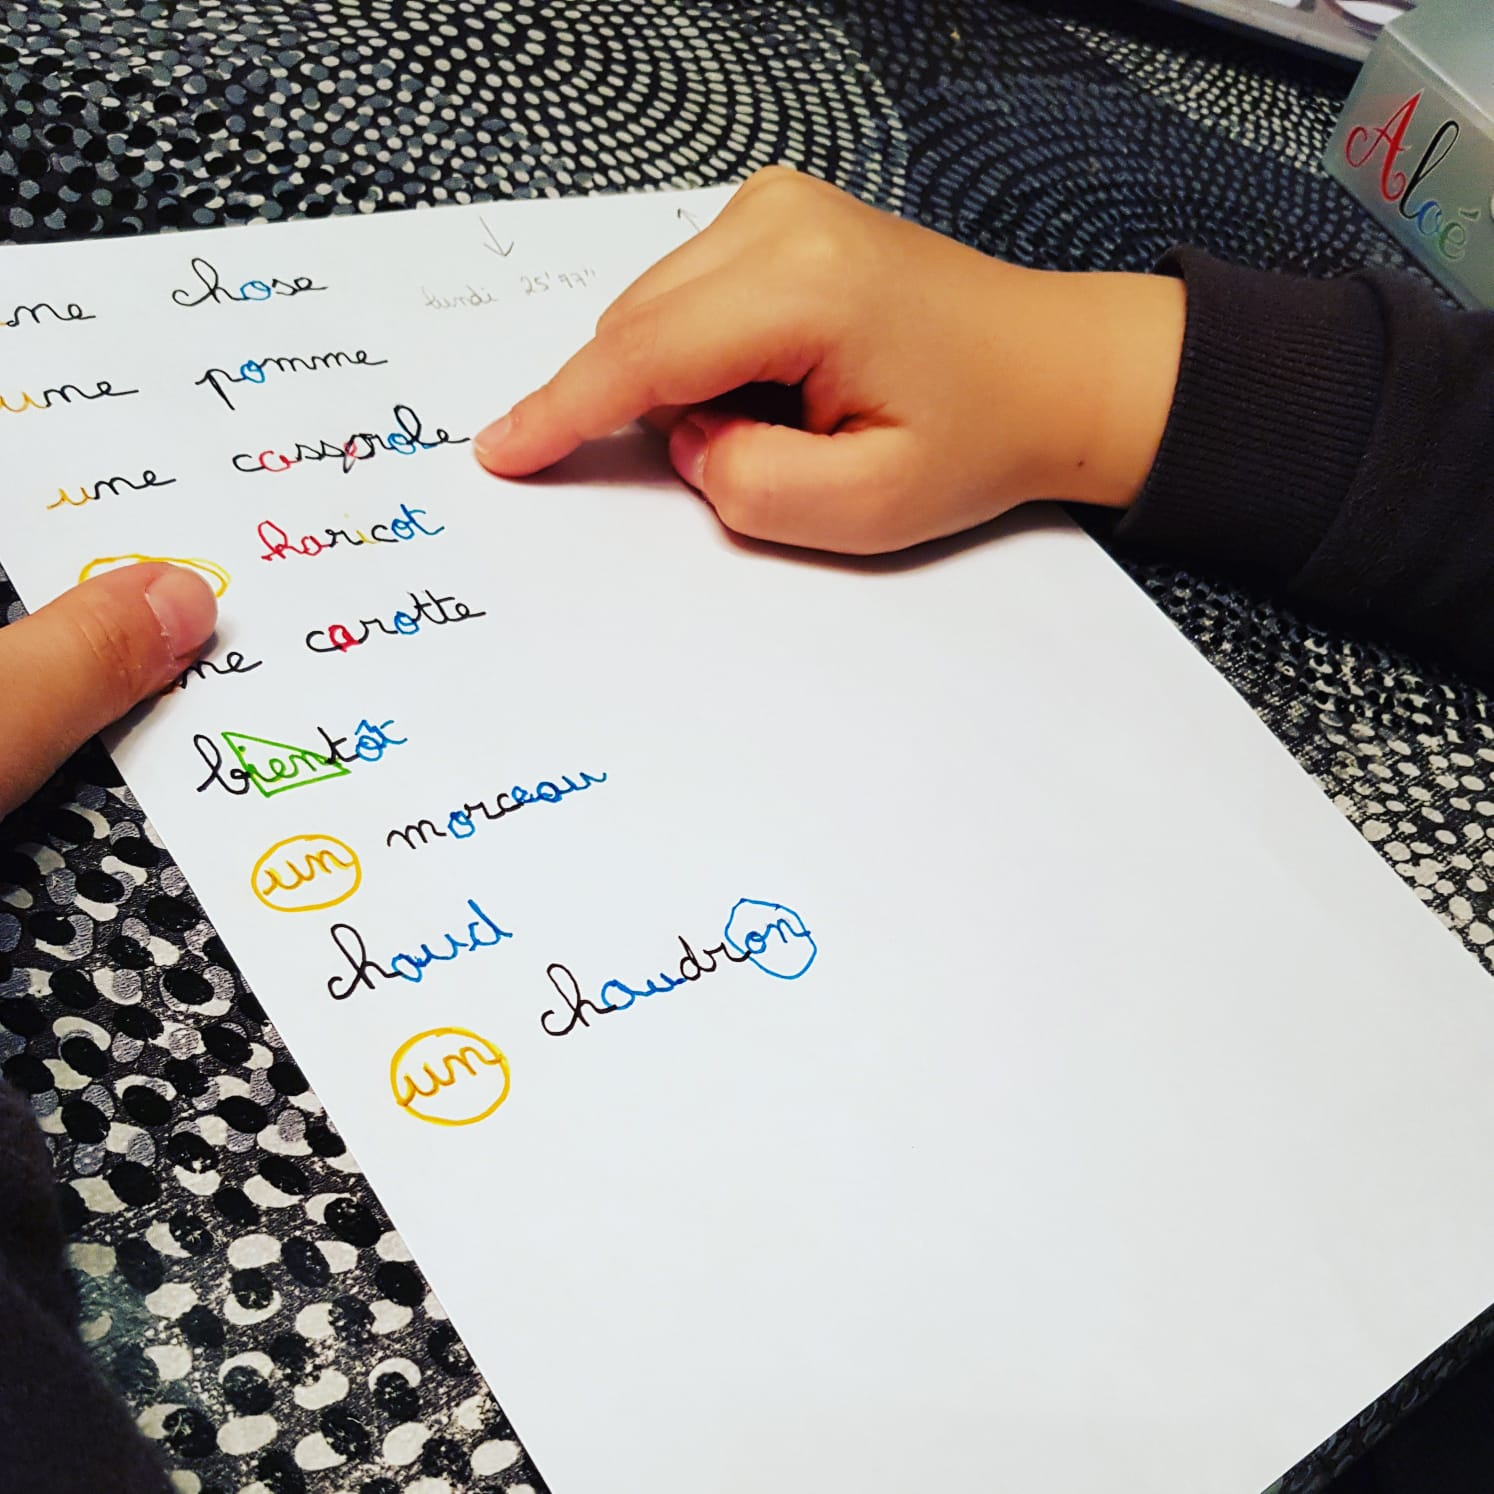 une chose
lundi 25'97"
une pomme
une casserole
haricot
ne carotte
bientôt
un morceau
chaud
un chaudron
Aloé